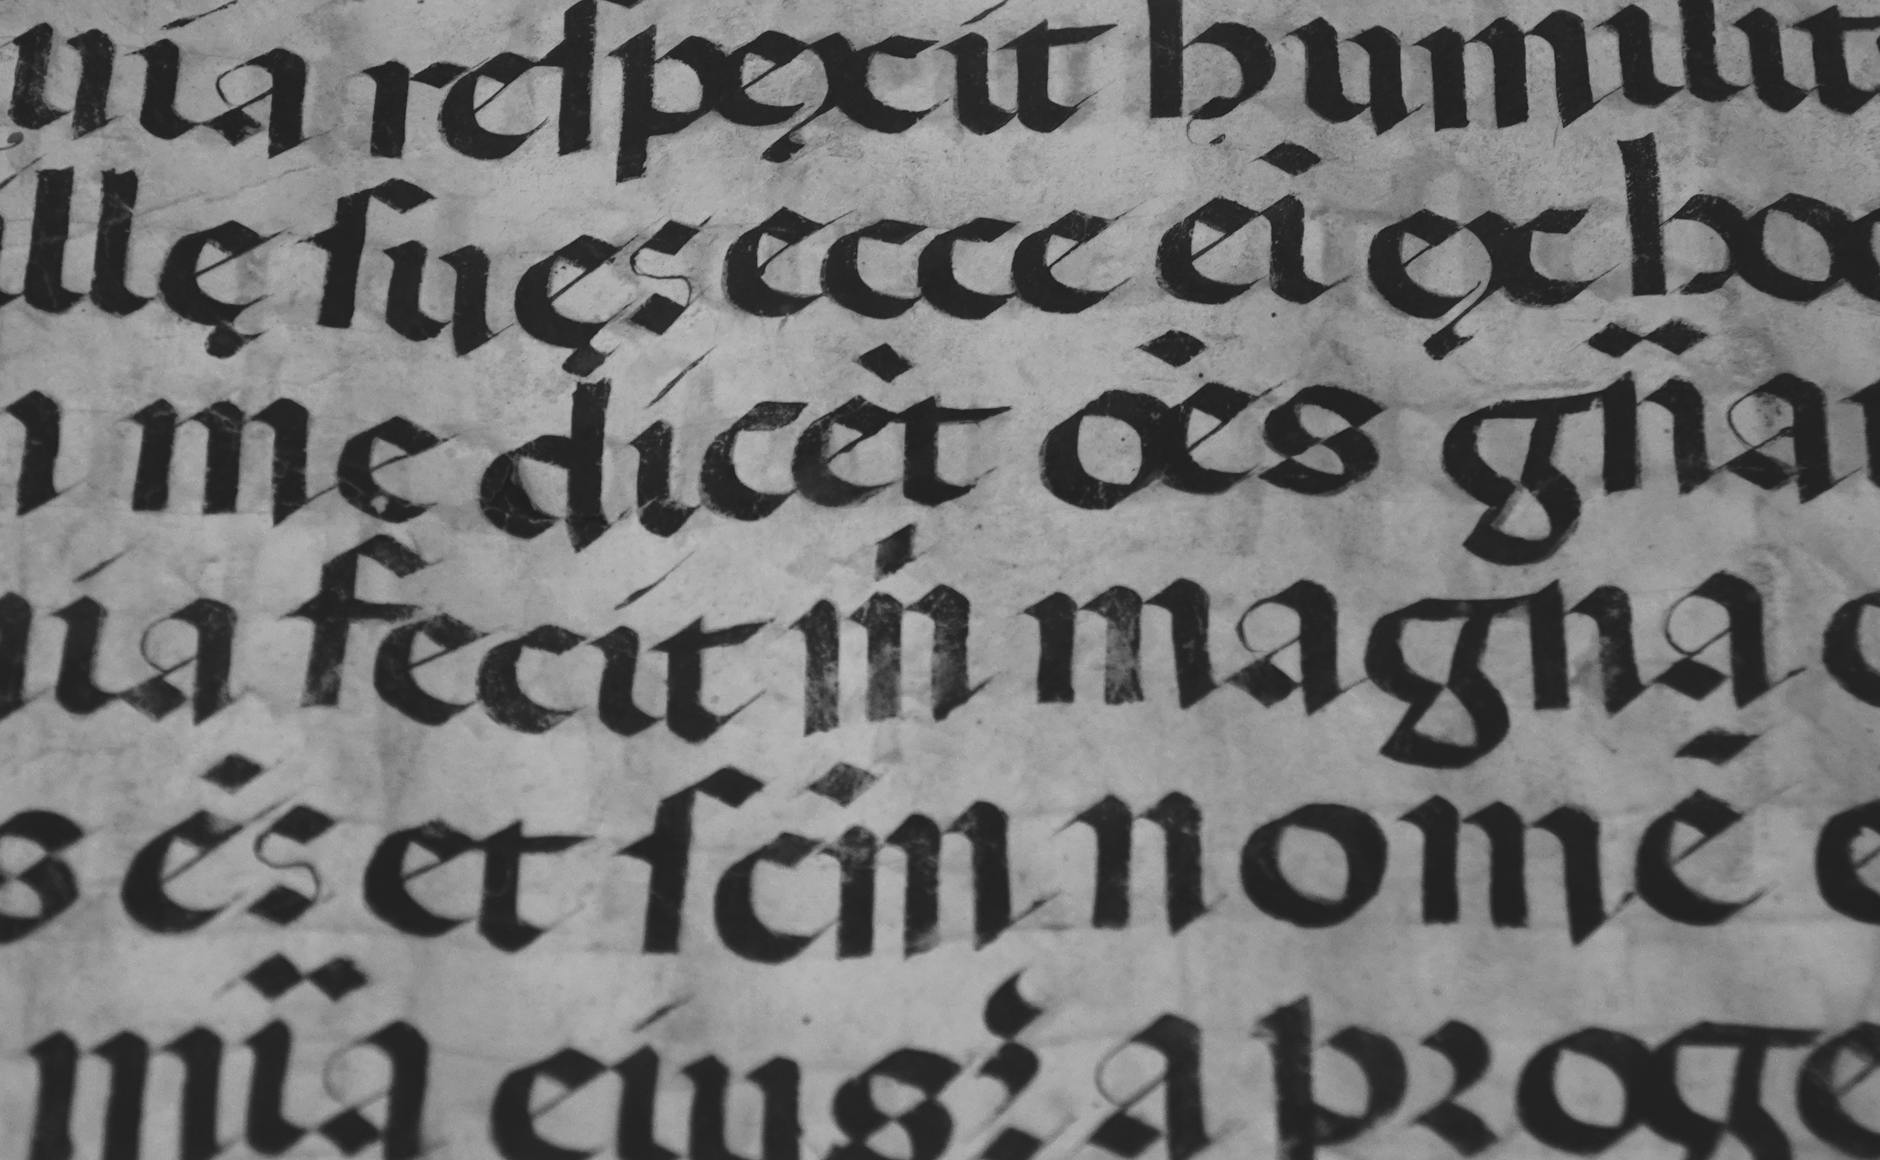 uia reſpęxit humilit
illę ſuęs ecce ei ęx hoc
i me dicėt oės gn̈a
uia fecit mi̇ magna
s ės et ſcm̄ nomē e
mïa eius; a proge